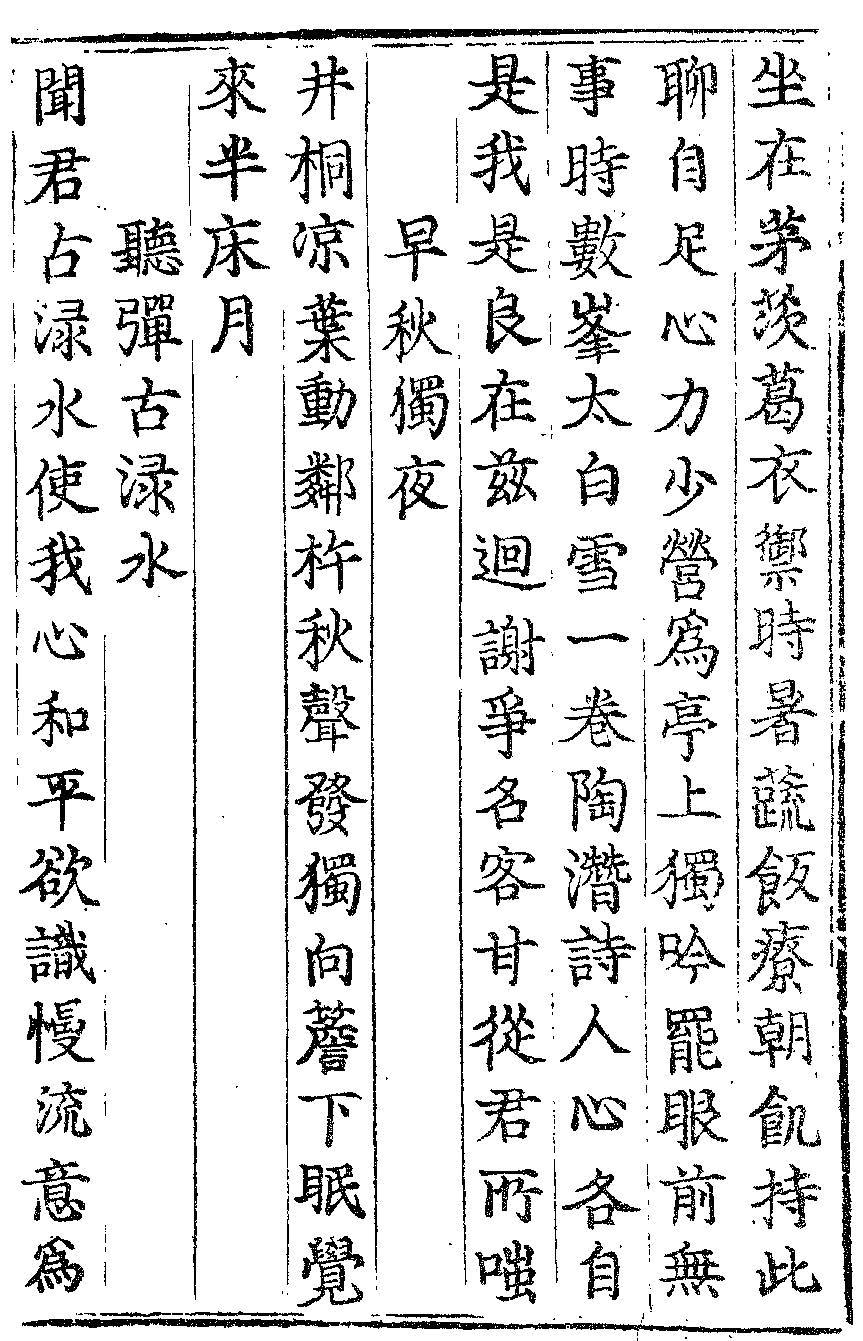 坐在茅茨葛衣禦時暑蔬飯療朝飢持此
聊自足心力少營爲亭上獨吟罷眼前無
事時數峯太白雪一卷陶潛詩人心各自
是我是良在兹迴謝爭名客甘從君所嗤
早秋獨夜
井桐凉葉動鄰杵秋聲發獨向簷下眠覺
來半床月
聽彈古渌水
聞君古渌水使我心和平欲識慢流意爲